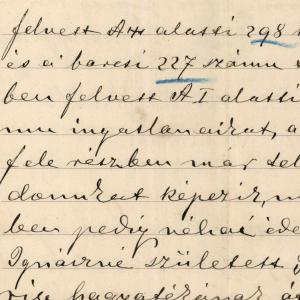 felvett A++ alatti 298
és a barcsi 227 számu
ben felvett A I alatti
mu ingatlanairat, a
fele részben már tel
donukat képezir, m
ben pedig néhai éde
Ignáczné született
hagyatékának